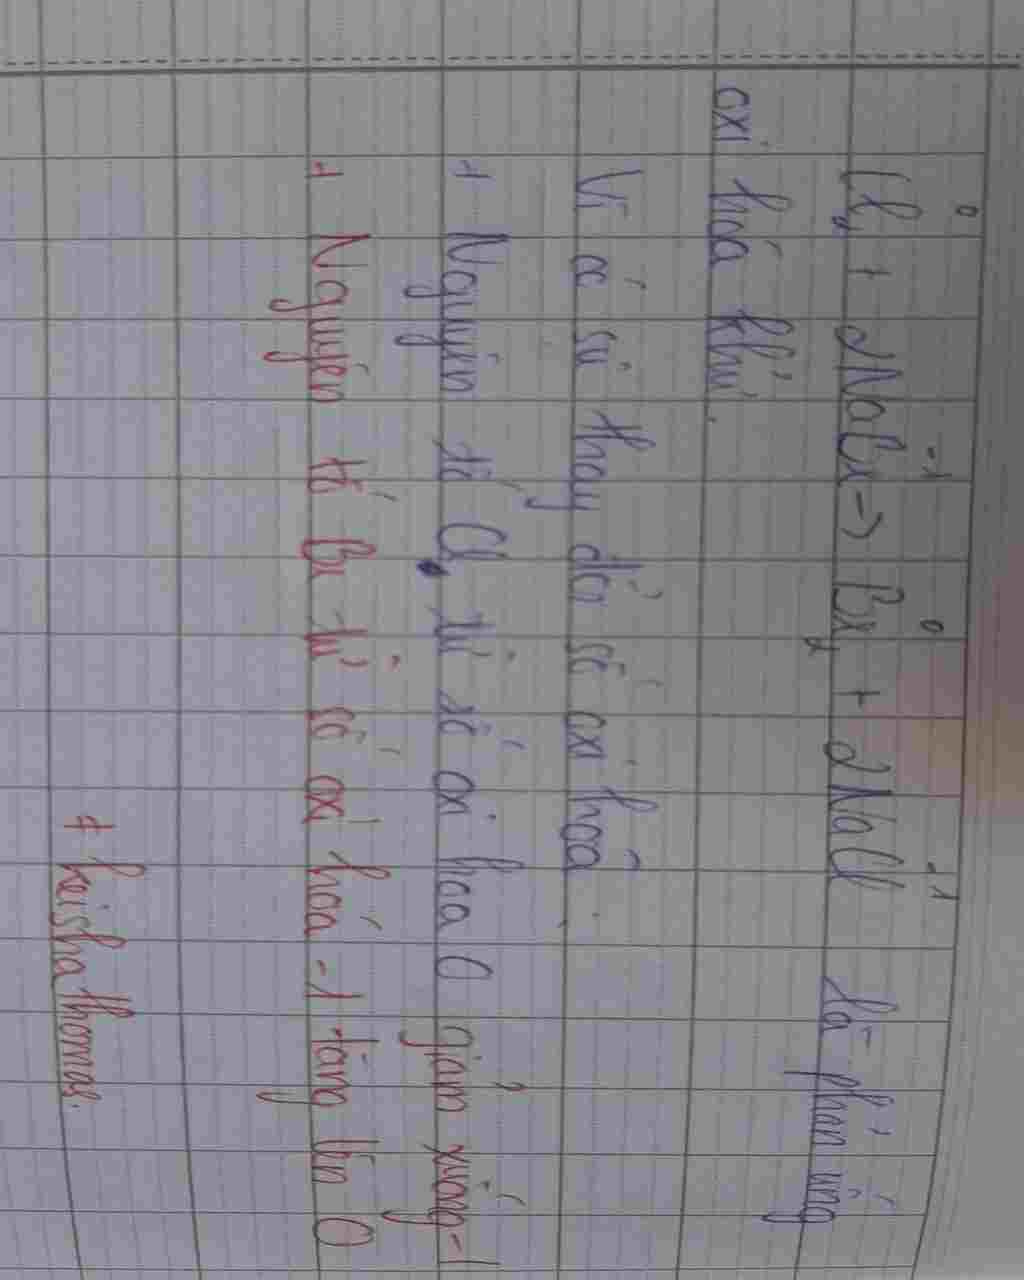 Cl₂⁰ + 2NaBr⁻¹ -> Br₂⁰ + 2NaCl⁻¹ là phản ứng
oxi hoá khử.
Vì có sự thay đổi số oxi hoá.
+ Nguyên tố Cl, từ số oxi hoá 0 giảm xuống -1
+ Nguyên tố Br từ số oxi hoá -1 tăng lên 0
# keishathomas.